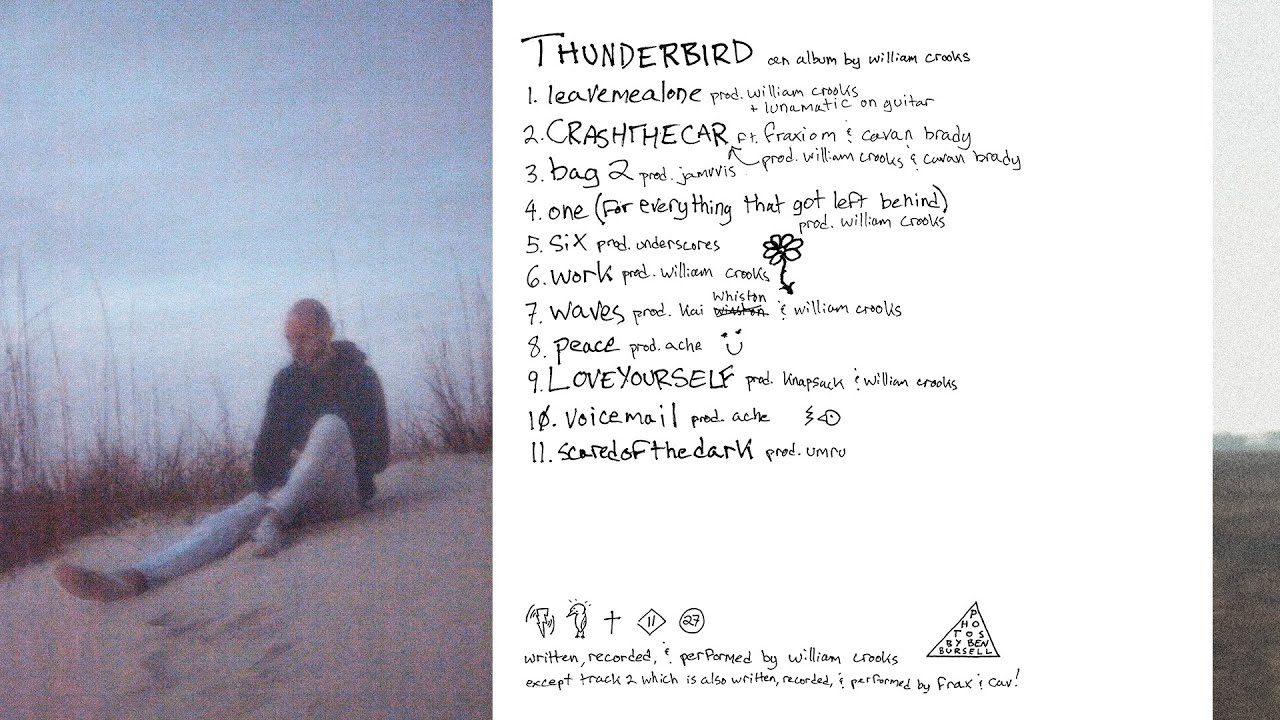 THUNDERBIRD an album by william crooks
1. leavemealone prod. william crooks
+ lunamatic on guitar
2. CRASHTHECAR ft. fraxiom & cavan brady
prod. william crooks & cavan brady
3. bag 2 prod. jamvvis
4. one (for everything that got left behind)
prod. william crooks
5. six prod. underscores
6. work prod. william crooks
whiston
7. waves prod. kai winston & william crooks
8. peace prod. ache
9. LOVEYOURSELF prod. knapsack & william crooks
10. voicemail prod. ache
11. scaredofthedark prod. umru
11 27
P
HO
TOS
BY BEN
BURSELL
written, recorded, & performed by william crooks
except track 2 which is also written, recorded, & performed by frax & cav!